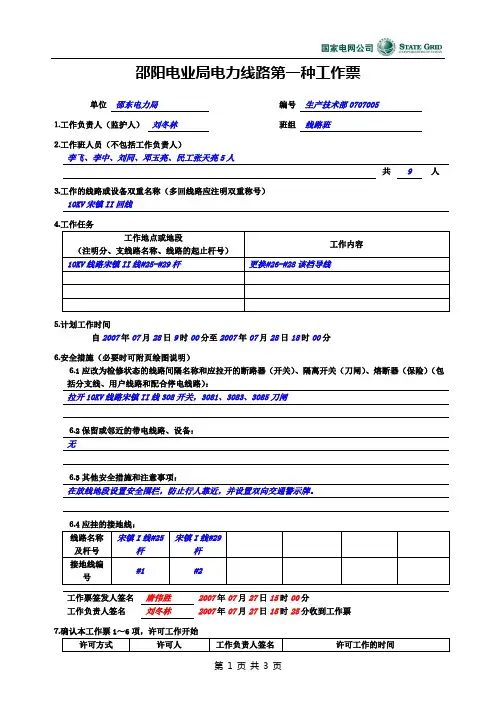 国家电网公司 STATE GRID
邵阳电业局电力线路第一种工作票
单位 邵东电力局 编号 生产技术部0707005
1.工作负责人（监护人） 刘冬林 班组 线路班
2.工作班人员（不包括工作负责人）
李飞、李中、刘同、邓玉亮、民工张天亮5人
共 9 人
3.工作的线路或设备双重名称（多回线路应注明双重称号）
10KV宋镇II回线
4.工作任务
工作地点或地段
（注明分、支线路名称、线路的起止杆号） 工作内容
10KV线路宋镇II线#25-#29杆 更换#26-#28该档导线
5.计划工作时间
自2007年07月28日9时00分至2007年07月28日18时00分
6.安全措施（必要时可附页绘图说明）
6.1应改为检修状态的线路间隔名称和应拉开的断路器（开关）、隔离开关（刀闸）、熔断器（保险）（包
括分支线、用户线路和配合停电线路）：
拉开10KV线路宋镇II线308开关，3081、3083、3085刀闸
6.2保留或邻近的带电线路、设备：
无
6.3其他安全措施和注意事项：
在放线地段设置安全围栏，防止行人靠近，并设置双向交通警示牌。
6.4应挂的接地线：
线路名称 宋镇I线#25 宋镇I线#29
及杆号 杆 杆
接地线编 #1 #2
号
工作票签发人签名 唐伟胜 2007年07月27日15时00分
工作负责人签名 刘冬林 2007年07月27日15时25分收到工作票
7.确认本工作票1～6项，许可工作开始
许可方式 许可人 工作负责人签名 许可工作的时间
第 1 页 共 3 页